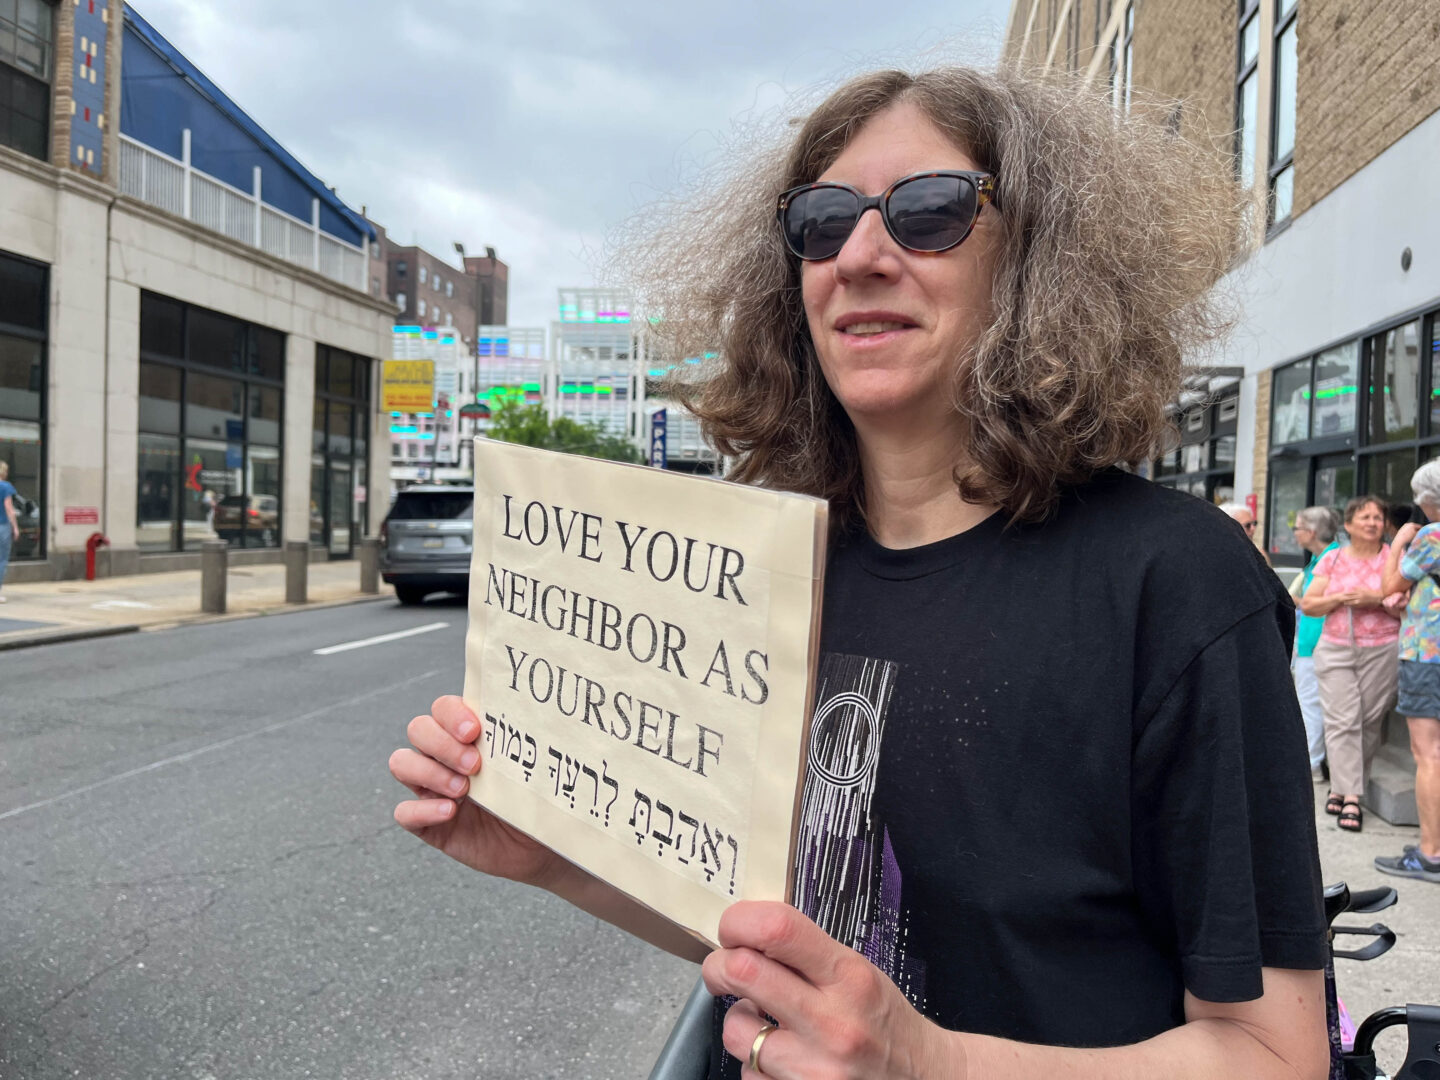 LOVE YOUR
NEIGHBOR AS
YOURSELF
וְאָהַבְתָּ לְרֵעֲךָ כָּמוֹךָ
PARK